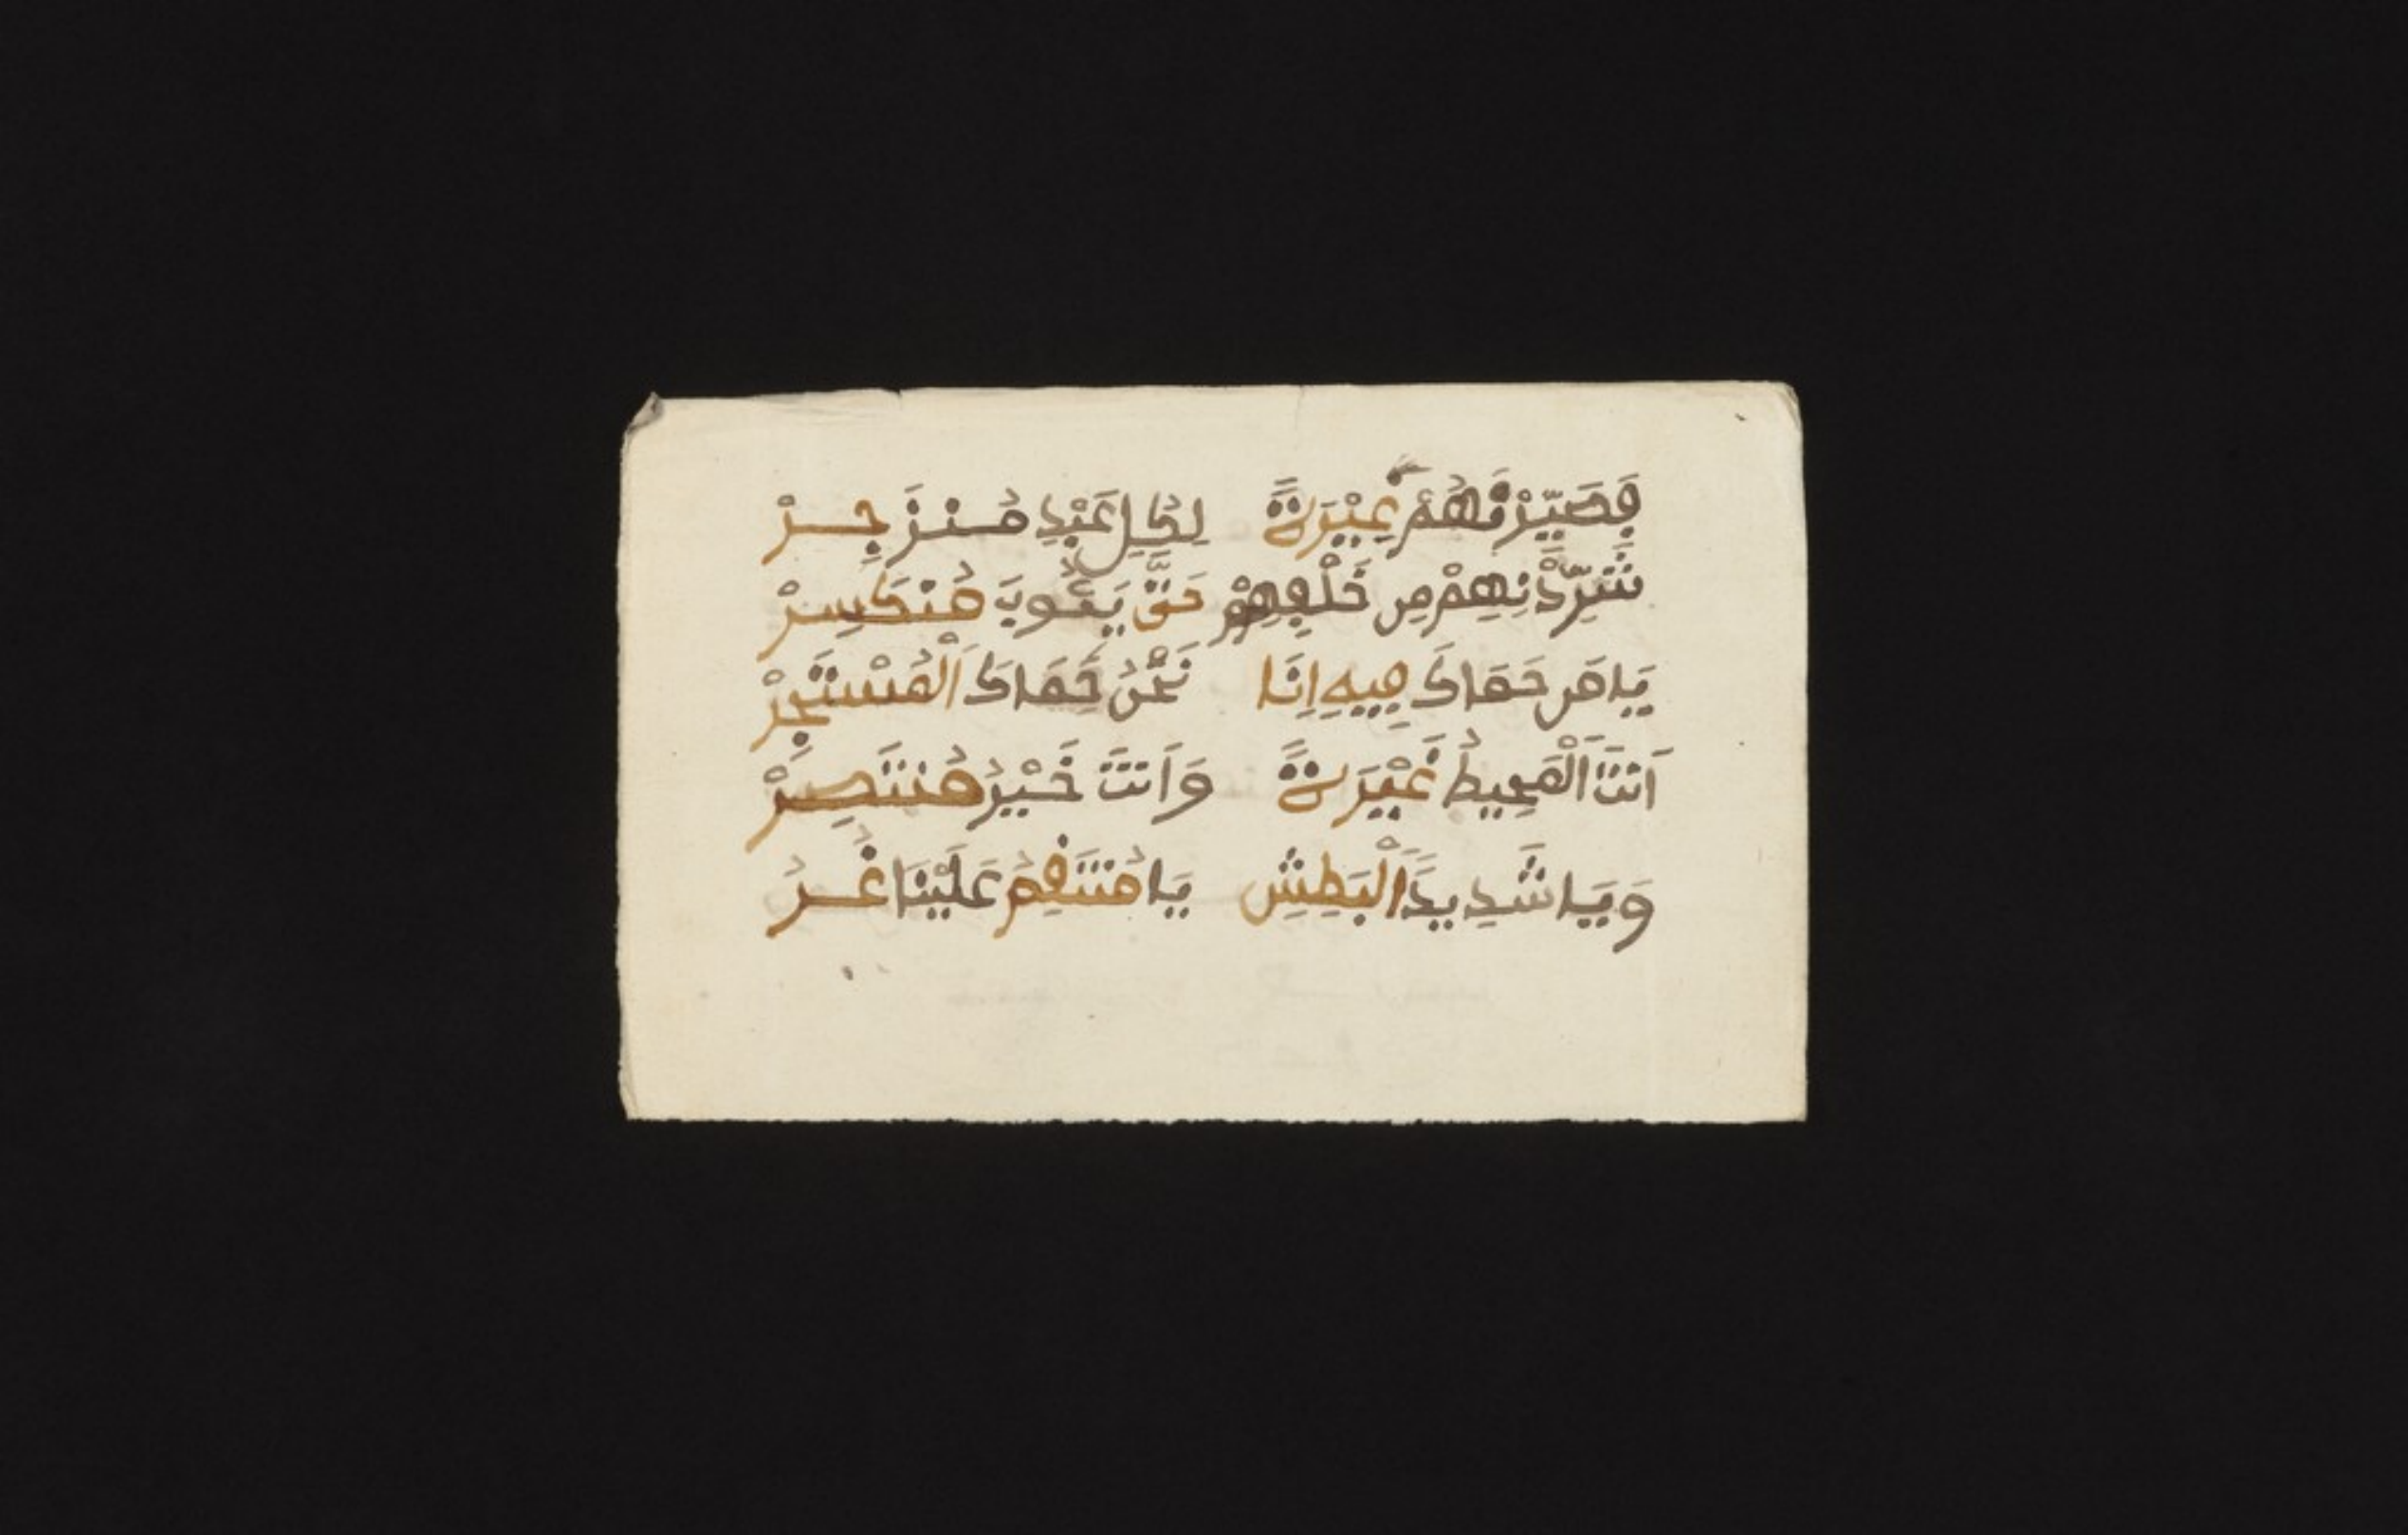 فَصَيِّرْنَهُمْ عِبْرَةً لِكُلِ عَبْدٍ مُنْزَجِرْ
شَرِّدْ بِهِمْ مِن خَلْفِهِمْ حَتَّى يَئُوبَ مُنْكَسِرْ
يَا مَن حَمَاكَ فِيهِ اِنَا نَحْنُ حِمَاكَ اَلْمُسْتَجِرْ
اَنتَ اَلْمُحِيطُ غَيْرَةً وَاَنتَ خَيْرُ مُنتَصِرْ
وَيَا شَدِيدَ اَلْبَطِشِ يَا مُنتَقِمُ عَلَيْنَا غُرْ